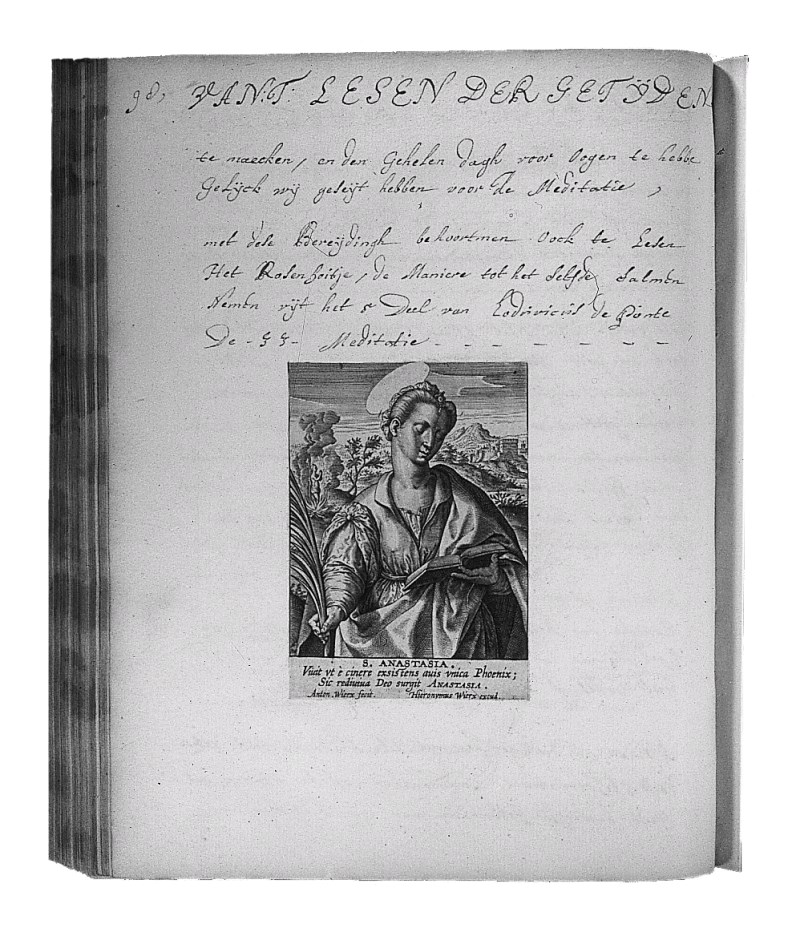 98, VAN.T. LESEN DER GETŸDEN.
te maecken, en den Gehelen dagh voor oogen te hebbe
Gelijck wij geseijt hebben voor de Meditatie,
met dese Bereijdingh behoortmen Oock te Lesen
Het Rosenhoitje, de Maniere tot het selfde salmen
Nemen vijt het 5 Deel van Lodivicús de Púnte
De - 33 - Meditatie - - - - - - -
S. ANASTASIA.
Viuit vt è cinere exsistens auis vnica Phoenix;
Sic rediuiua Deo surgit ANASTASIA.
Anton. Wierx fecit. Hieronymus Wierx excud.